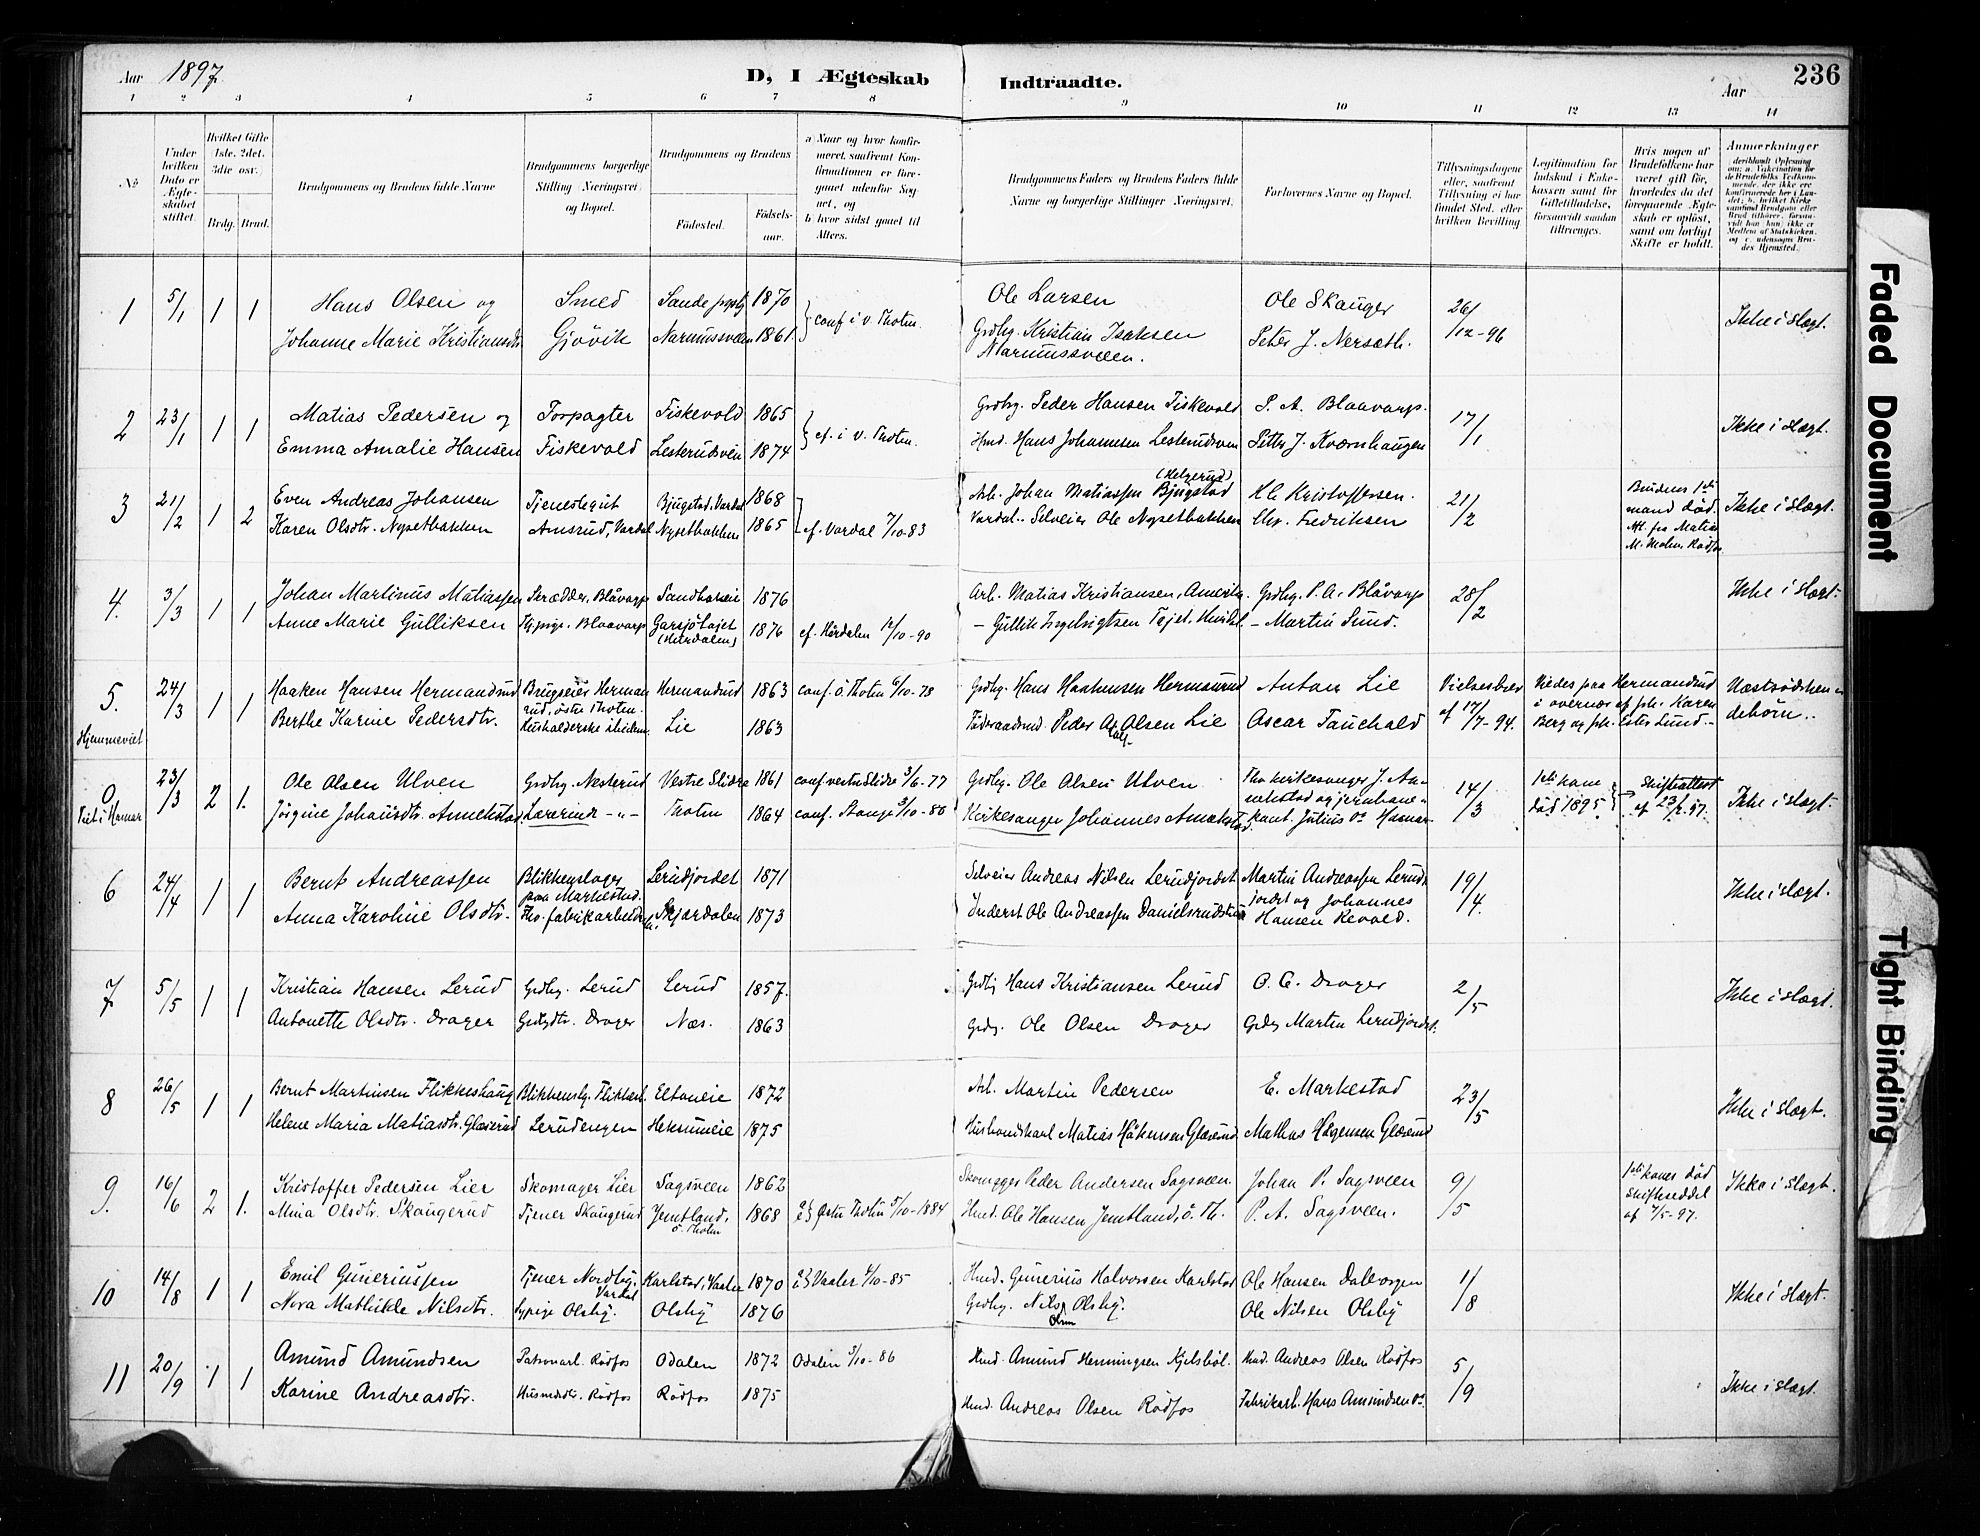 Aar 1897. D, I Ægteskab Indtraadte. Aar 236
1 2 3 4 5 6 7 8 9 10 11 12 13 14
No
Under hvilken Dato er Ægteskabet stiftet.
Hvilket Gifte 1ste. 2det. 3die osv.
Brdg. Brud.
Brudgommens og Brudens fulde Navne
Brudgommens borgerlige Stilling Næringsvei og Bopæl.
Brudgommens og Brudens
Fødested.
Fødselsaar.
a Naar og hvor konfirmeret, saafremt Konfirmationen er foregaaet udenfor Sognet, og
b hvor sidst gaaet til Alters.
Brudgommens Faders og Brudens Faders fulde Navne og borgerlige Stillinger Næringsvei.
Forlovernes Navne og Bopæl.
Tillysningsdagene eller, saafremt Tillysning ei har fundet Sted, efter hvilken Bevilling
Legitimation for Indskud i Enkekassen samt for Giftetilladelse, forsaavidt saadan tiltrænges.
Hvis nogen af Brudefolkene har været gift før, hvorledes da det foregaaende Ægteskab er opløst, samt om lovligt Skifte er holdt.
Anmærkninger
1 5/1 1 1 Hans Olsen og Smed Sande 1870 conf i v. Thotn. Ole Larsen Ole Skauger 26/12-96 Ikke i slægt.
Johanne Marie Kristiansdtr Gjøvik 1861 Grdbr. Kristian Isaksen Peter J. Nersæth.
2 23/1 1 1 Matias Pedersen og Forpagter Fiskevold 1865 cf. i v. Thoten. Grdbr. Peder Hansen Fiskevold P. A. Blaavarp. 17/1 Ikke i slægt.
Emma Amalie Hansen Fiskevold Lesterudsvein 1874 Hmd. Hans Johannesen Petter J. Kværnhaugen
3 21/2 1 2 Even Andreas Johansen Tjenestegut Bjugstad, Vardal 1868 Arb. Johan Matiassen Bjugstad (Helgerud) Kristoffersen. 21/2 Brudens 1ste mand død. Ikke i slægt.
Karen Olsdtr. Nysetbakken Amsrud, Vardal Nysetbakken 1865 cf. Vardal 7/10-83 Vardal. Selveier Ole Nysetbakken Chr. Fredriksen
4. 3/3 1 1 Johan Martinus Matiassen Skrædder, Blåvarp 1876 Arb. Matias Kristiansen, Amerika Grdbr. P. A. Blåvarp 28/2 Ikke i slægt.
Anne Marie Gulliksen Blaavarp Garsjötajet (Hurdalen) 1876 cf. Hurdalen 12/10-90 - Gullik Ingebrigtsen - Martin Sund.
5. 24/3 1 1 Haaken Hansen Hermandrud Brugseier Hermanrud, østre Thoten. Hermandrud 1863 conf. ø. Thotn 6/10-78 Grdbr. Hans Haakensen Hermanrud Anton Lie Vielsesbrev af 17/7-94. Viedes paa Hermandrud i overvær af frk. Karen Berg og frk. Ester Lund. Næstsødskendebørn.
Hjemmeviet Berthe Karine Pedersdtr. Husholderske Lie 1863 Peder Olsen Lie Oscar Tauchald
0 Viet i Hamar 23/3 2 1. Ole Olsen Ulven Grdbr. Nesterud Vestre Slidre 1861 conf. vestre Slidre 3/6-77 Grdbr. Ole Olsen Ulven Fhv kirkesanger J. 14/3 1ste kone død 1895 Skifteattest af 23/2 97. Ikke i slægt.
Jørgine Johansdtr. Lærerinde -"- Thotn 1864 conf. Stange 3/10-80 Kirkesanger Johannes Julius
6 24/4 1 1 Bernt Andreassen Blikkenslager paa Markestad. Lerudjordet 1871 Selveier Andreas Nilsen Lerudjordet Martin Andreassen Lerudjordet og Johannes Hansen Revold. 19/4. Ikke i slægt.
Anna Karoline Olsdtr. Fhv. fabrikarbeiderske. Skjærdalen 1873 Inderst Ole Andreassen
7 5/5 1 1 Kristian Hansen Lerud Grdbr. Lerud Lerud 1857. Grdbr Hans Kristiansen Lerud O. C. Drager 2/5 Ikke i slægt.
Antonette Olsdtr. Drager Grdbrdtr. Drager Næs. 1863 Grdbr. Ole Olsen Drager Grdbr Martin Lerudjordet.
8 26/5 1 1 Bernt Martinsen Flikkeshaug Blikkenslg. 1872 Arb. Martin Pedersen E. Markestad 23/5 Ikke i slægt.
Helene Maria Matiasdtr. Glæserud Lerudengen 1875 Husbondskarl Matias Håkensen Glæserud Mathias Hågensen Glæserud
9. 16/6 2 1. Kristoffer Pedersen Lier Skomager Lier Sagsveen 1862 Peder Andersen Sagsveen Johan P. Sagsveen 9/5 1ste kones død skifteseddel af 7/5-97. Ikke i slægt.
Mina Olsdtr. Skaugerud Tjener Skaugerud Jemtland, ø. Thotn 1868 Østre Thotn 5/10-1884 Hmd. Ole Hansen Jemtland, ø. Th. P. A. Sagsveen.
10 14/8 1 1 Emil Guneriussen Tjener Nordby, Vardal Karlstad, Vaaler 1870 Vaaler 4/10-85 Hmd. Gunerius Halvorsen Karlstad Ole Hansen Dalborgen 1/8 Ikke i slægt.
Nora Mathilde Nilsdtr. Sypige Olsby. Olsby 1876 Grdbr. Nils Olsby. Ole Nilsen Olsby
11 20/9 1 1 Amund Amundsen Patronarb. Rødfos Odalen 1872 Odalen 3/10-86 Hmd. Amund Henningsen Hmd. Andreas Olsen Rødfos 5/9 Ikke i slægt.
Karine Andreasdtr. Husmdsdtr. Rødfos Rødfos 1875 Hmd. Andreas Olsen Rødfos Fabrikarb. Hans Amundsen
Faded Document
Tight Binding